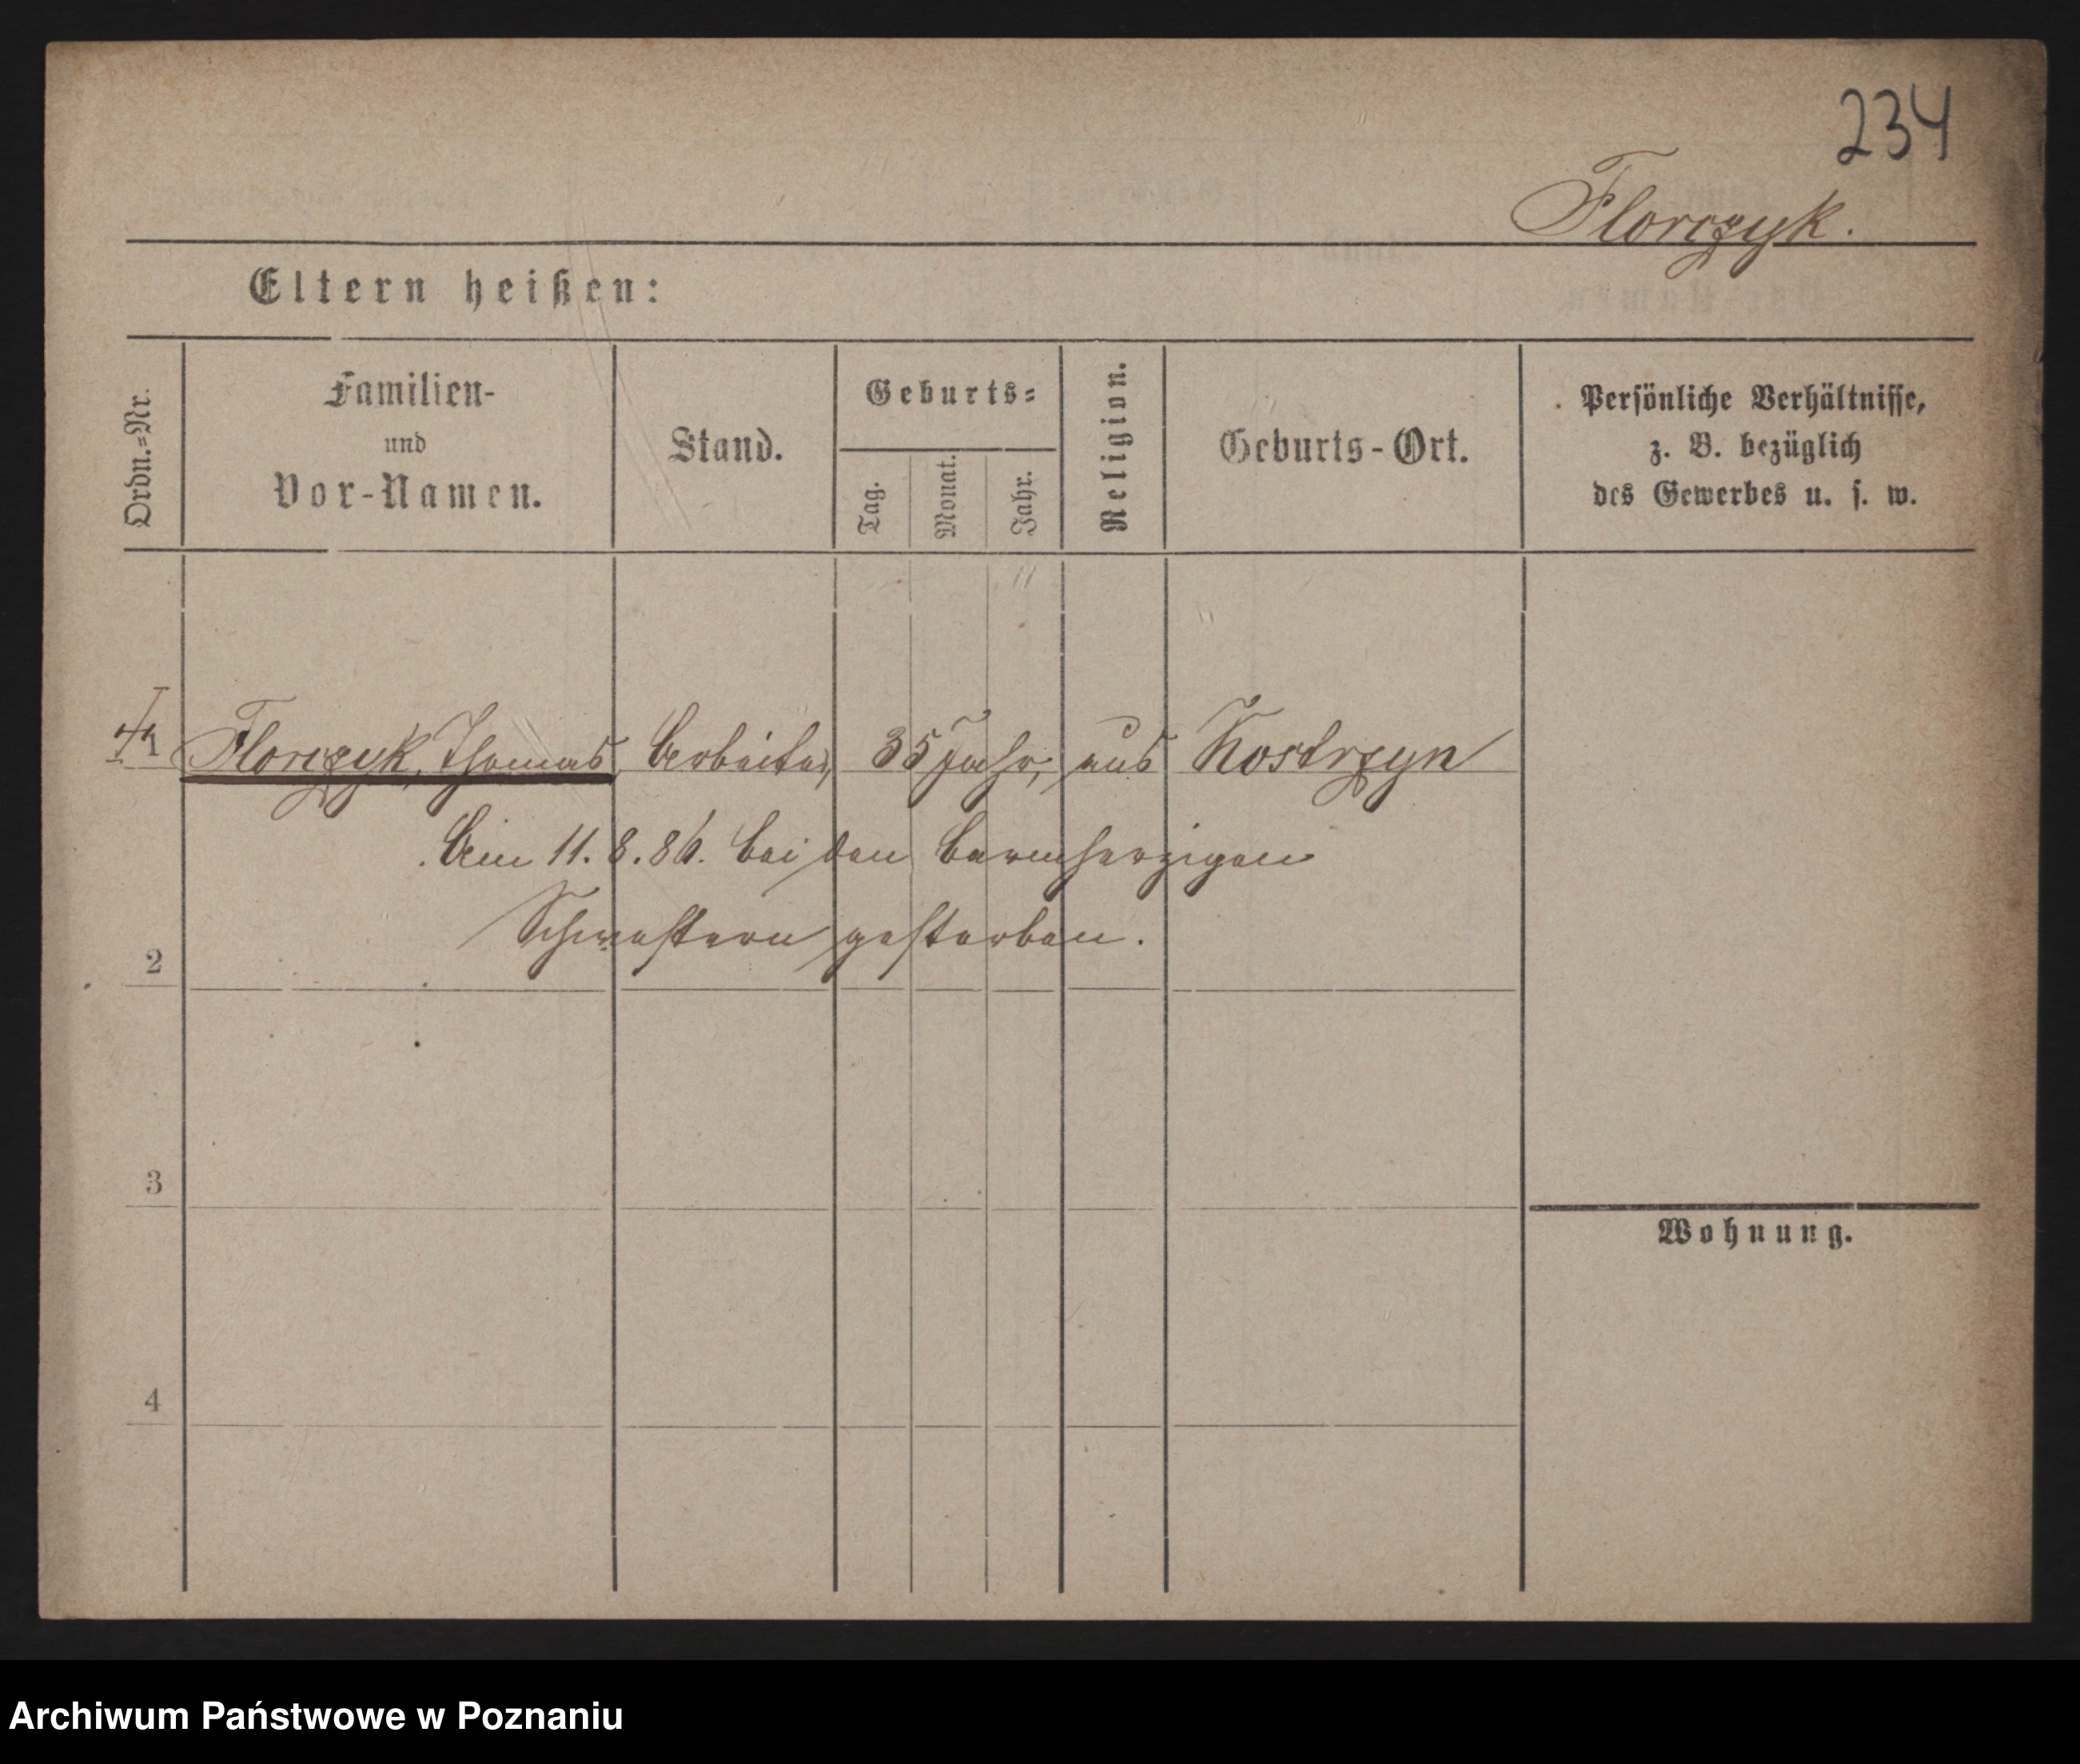 234
Florczyk.
Eltern heißen:
Ordn.=Nr.
Familien-
und
Vor-Namen.
Stand.
Geburts=
Tag.
Monat.
Jahr.
Religion.
Geburts-Ort.
Persönliche Verhältnisse,
z. B. bezüglich
des Gewerbes u. s. w.
1 Florczyk, Thomas, Arbeiter, 35 Jahr, aus Kostrzyn
Am 11.8.86. bei den barmherzigen
Schwestern gestorben.
2
3
Wohnung.
4
Archiwum Państwowe w Poznaniu